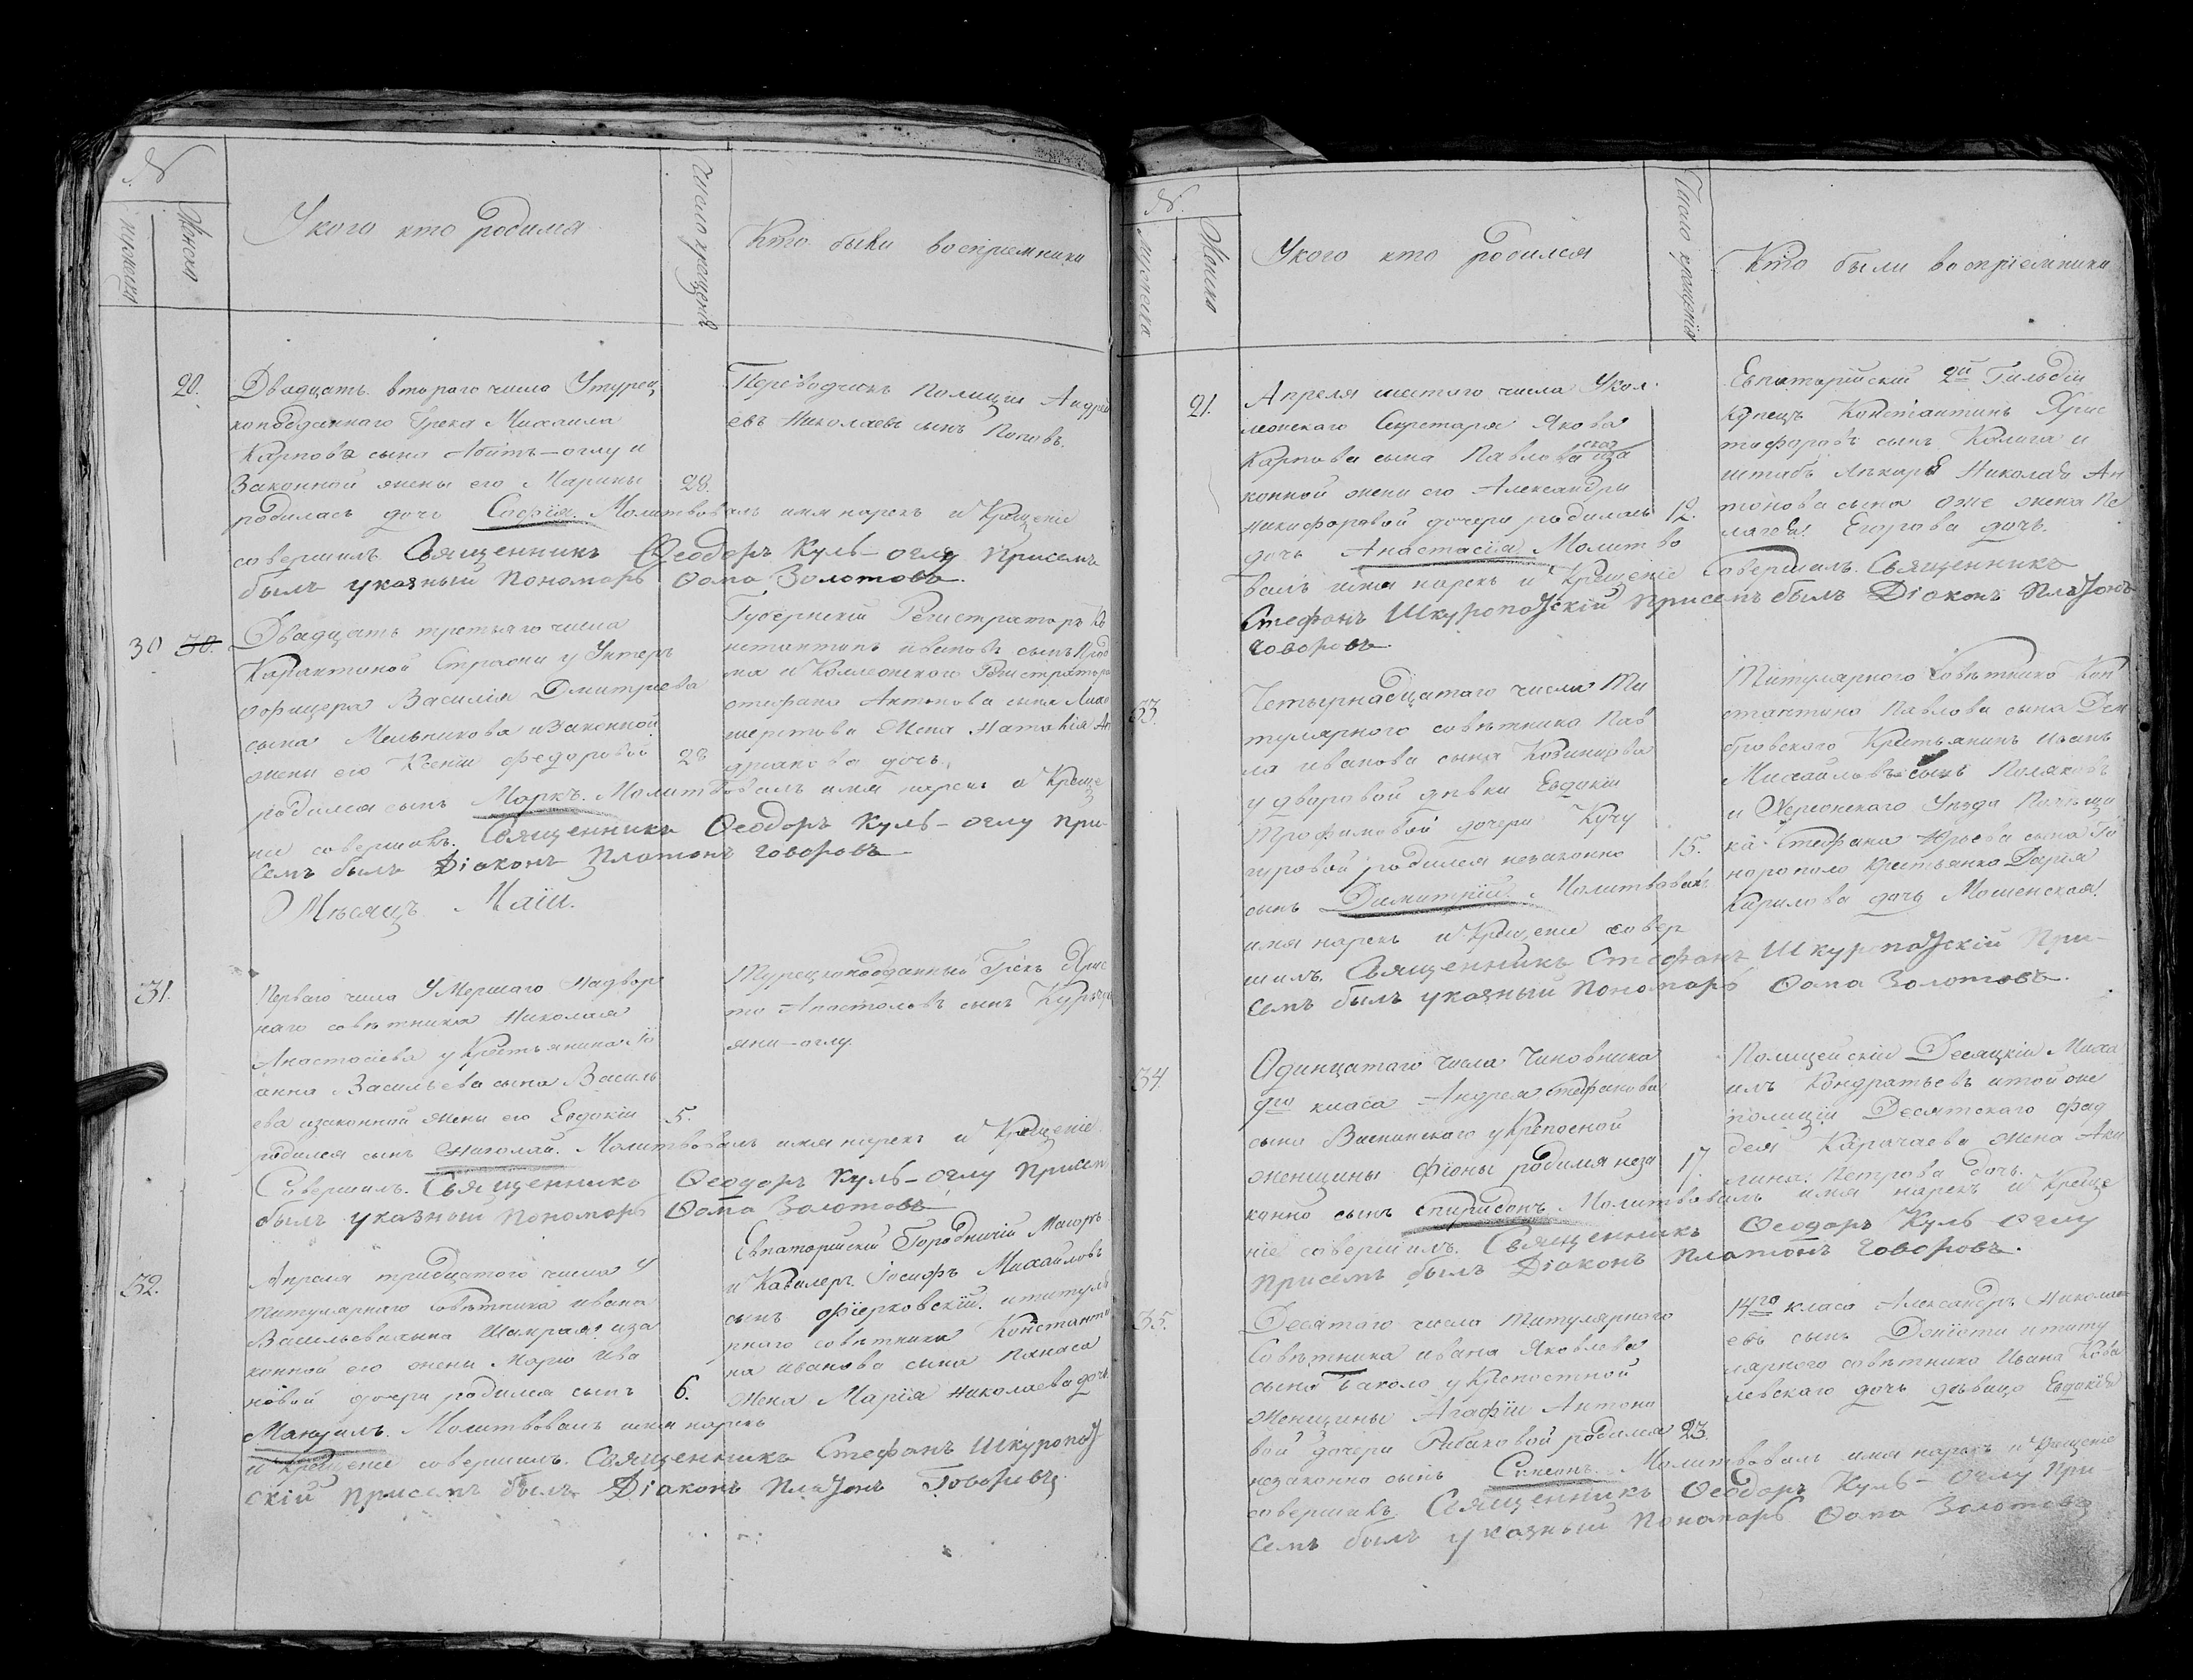 №
мужеска
женска
У кого кто родился
число крещенія
Кто были воспріемники
20.
Двадцать втораго числа У турец
коподданнаго Грека Михаила
Карпова сына оглу и
Законной жены его Марины
родилась дочь Софія. Молитвовалъ имя нарекъ и Крещеніе
совершилъ Священникъ Ѳеодоръ Куль-оглу Присемъ
былъ указный Пономарь Ѳома Золотовъ.
28.
Переводчикъ Полиціи Андрей
евъ Николаевъ сынъ Поповъ.
30 30.
Двадцать третьяго числа
Карантиной Стражи у Унтеръ
офицера Василія Дмитріева
сына Мельникова изаконной
жены его Ксеніи федоровой
родился сынъ Маркъ. Молитвовалъ имя нарекъ и Креще
ніе совершилъ. Священникъ Ѳеодоръ Куль-оглу при
семъ былъ Діаконъ Платонъ Говоровъ
28
Губернскій Регистраторъ Ко
нстантинъ ивановъ сынъ
ма и Коллежскаго Регистратора
стефана Антонова сына
жена Наталія Ан
дрианова дочь.
Мѣсяцъ Маій.
31.
Перваго числа Умершаго Надвор
наго совѣтника Николая
Анастасіева у Крестьянина Іо
анна Васильева сына Василь
ева изаконной жены его Евдокіи
родился сынъ Николай. Молитвовалъ имя нарекъ и Крещеніе
Совершилъ. Священникъ Ѳеодоръ Куль-оглу Присемъ
былъ указный Пономарь Ѳома Золотовъ
5.
Турецкоподданный Грекъ Хрис
то Апостоловъ сынъ
яни-оглу.
32.
Апреля тридцатого числа У
титулярнаго Совѣтника ивана
Васильева сына иза
конной его жены Маріи Ива
новой дочери родился сынъ
Мануилъ. Молитвовалъ имя нарекъ
и Крещеніе совершилъ. Священникъ Стефанъ Шкуропат
скій присемъ былъ Діаконъ Платонъ Говоровъ.
6.
Евпаторійскій Городничій Маіоръ
и Кавалеръ Іосифъ Михайловъ
сынъ фіерковскій. и титуля
рнаго совѣтника Константи
на иванова сына Панаса
жена Марія Николаева дочь.
№.
мужеска
Женска
У кого кто родился
Число крещенія
Кто были воспріемники
21.
Апреля шестаго числа У Кол.
лежскаго Секретаря Якова
Карпова сына Павлова иза
конной жены его Александры
никифоровой дочери родилась
дочь Анастасія. Молитво
валъ имя нарекъ и Крещеніе Совершилъ. Священникъ
Стефанъ Шкуропатскій Присемъ былъ Діаконъ Платонъ
Говоровъ.
12.
Евпаторійскій 2й Гильдіи
Купецъ Константинъ Хрис
тофоровъ сынъ Калига и
штабъ лѣкаря Николая Ан
тонова сына оже жена Пе
лагея Егорова дочь.
33.
Четырнадцатаго числа Ти
тулярнаго совѣтника Пав
ла иванова сына
у дворовой дѣвки Евдокіи
Трофимовой дочери Кучу
гуровой родился незаконно
сынъ Димитрій. Молитвовалъ
имя нарекъ и Крещеніе совер
шилъ. Священникъ Стефанъ Шкуропатскій При
семъ былъ указный Пономарь Ѳома Золотовъ.
15.
Титулярного Совѣтника Кон
стантина Павлова сына Дем
бровского Крестьянинъ иванъ
Михайловъ сынъ Поляковъ
и Херсонскаго Уезда Помѣщи
ка Стефана Юрьева сына
Крестьянка Дарія
Кирилова дочь Мошенская.
34.
Одинцатаго числа Чиновника
9го класа Андрея стефанова
сына у Крепосной
женщины Фіоны родился неза
конно сынъ Спиридонъ. Молитвовалъ имя нарекъ и Креще
ніе совершилъ. Священникъ Ѳеодоръ Куль-оглу
присемъ былъ Діаконъ Платонъ Говоровъ.
17.
Полицейскій Десяцкій Миха
илъ Кондратьевъ и той оже
полиціи Десятскаго фад
дея Карачаева жена Аки
лина. Петрова дочь.
35.
Десятого числа титулярного
Совѣтника ивана Яковлева
сына у Крепостной
женщины Агафіи Антоно
вой дочери Рибаковой родился
незаконно сынъ Симеонъ. Молитвовалъ имя нарекъ и Крещеніе
совершилъ Священникъ Ѳеодоръ Куль-оглу при
семъ былъ указный Пономарь Ѳома Золотовъ
23.
14го класа Александръ Николае
евъ сынъ и титу
лярного совѣтника Ивана Кова
левскаго дочь дѣвица Евдокія